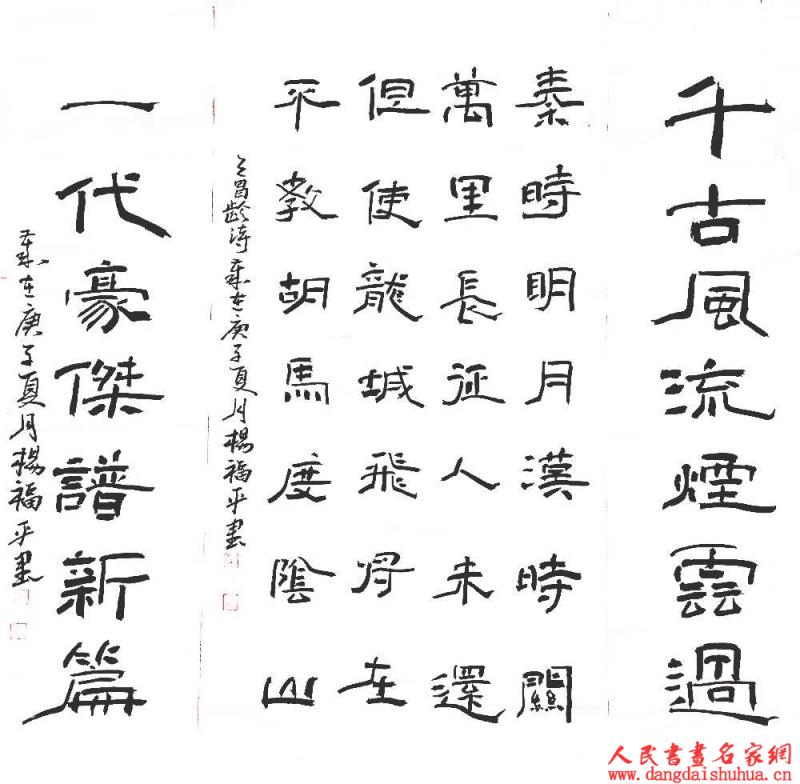 千古風流煙雲過
秦時明月漢時關
萬里長征人未還
但使龍城飛将在
不教胡馬度陰山
王昌龄诗歲在庚子夏月楊福平書
一代豪傑譜新篇
歲在庚子夏月楊福平書
人民書畫名家網
www.dangdaishuhua.cn